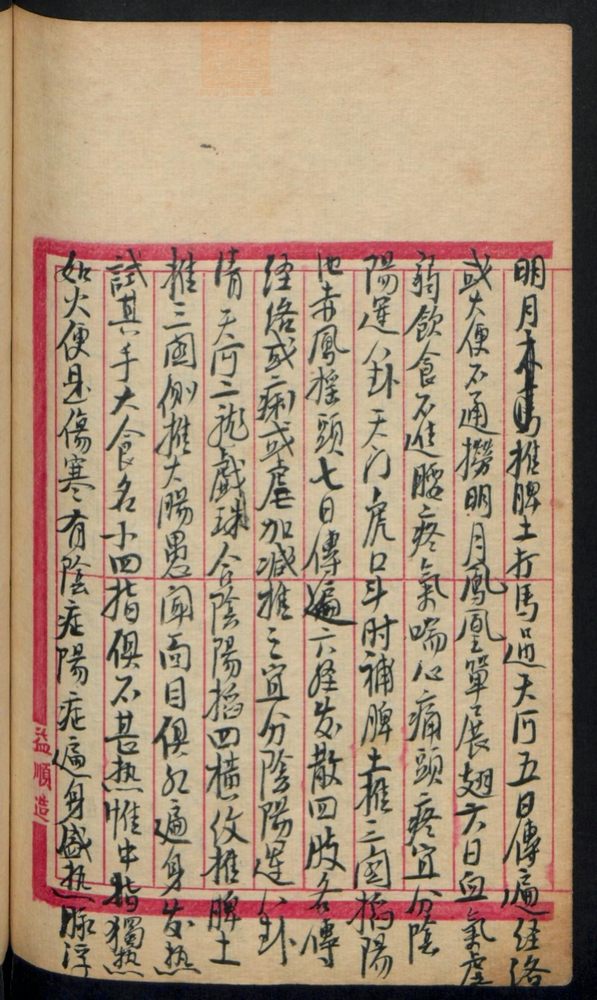 明月推脾土打馬過天河五日傳遍经络
或大便不通撈明月鳳凰單展翅六日血氣虛
弱飲食不進腰疼氣喘心痛頭疼宜分陰
陽運八卦天门虎口斗肘補脾土推三関掐陽
池赤鳳摇頭七日傳遍六经发散四肢各傳
经络或痢或虐加减推之宜分陰陽運八卦
清天河二龙戲珠合陰陽掐四横纹推脾土
推三関侧推大腸愚闻面目俱红遍身发热
試其手大食名小四指俱不甚热惟中指獨热
如火便是傷寒有陰症陽症遍身盛热脉浮
益順造